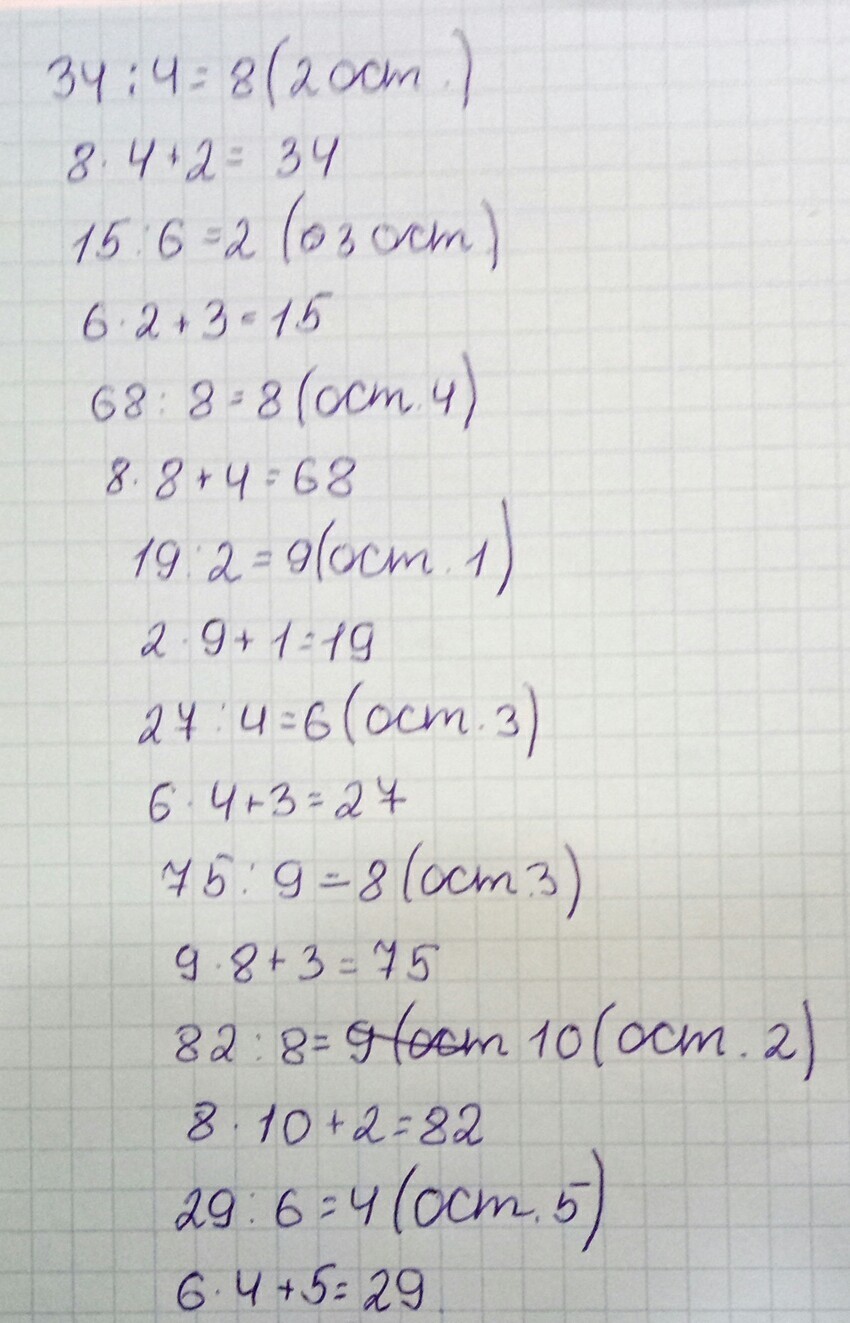 34 : 4 = 8 (2 ост.)
8 · 4 + 2 = 34
15 : 6 = 2 (о3 ост)
6 · 2 + 3 = 15
68 : 8 = 8 (ост. 4)
8 · 8 + 4 = 68
19 : 2 = 9 (ост. 1)
2 · 9 + 1 = 19
27 : 4 = 6 (ост. 3)
6 · 4 + 3 = 27
75 : 9 = 8 (ост. 3)
9 · 8 + 3 = 75
82 : 8 = 9 (ост 10 (ост. 2)
8 · 10 + 2 = 82
29 : 6 = 4 (ост. 5)
6 · 4 + 5 = 29